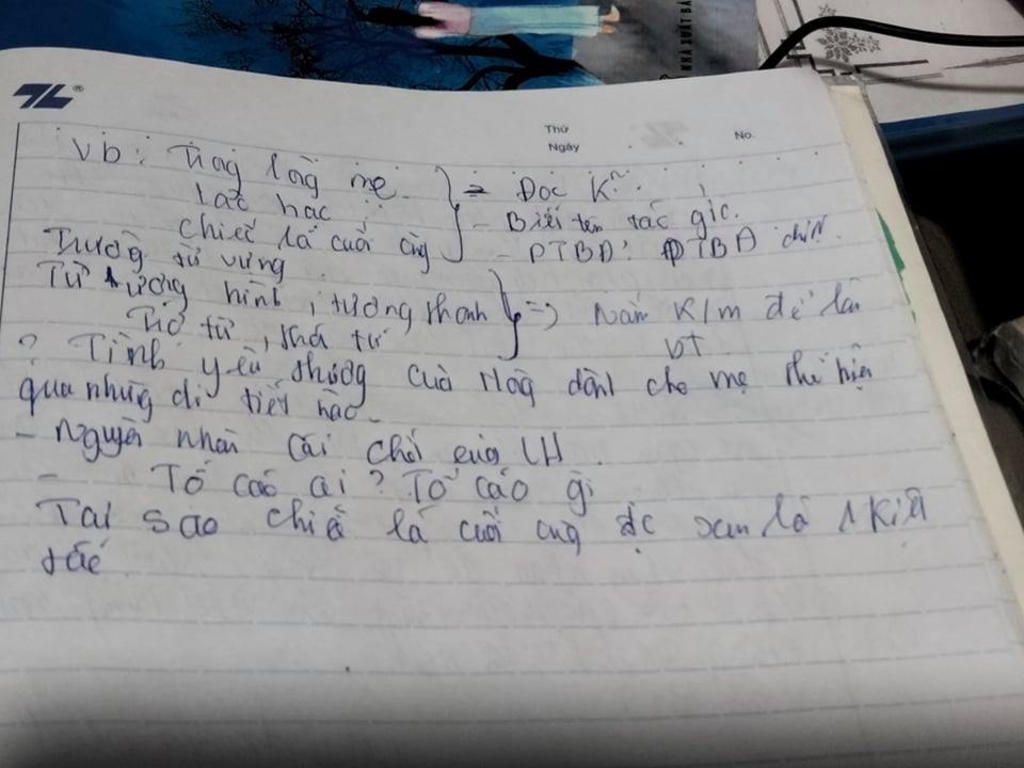 NHÀ XUẤT BẢ
TL®
Thứ
Ngày
No.
Vb: Trog lòg mẹ = Đọc Kỹ.
Lão hạc - Biết tên tác giả.
Chiếc lá cuối cùg - PTBĐ: PTBĐ chính
Trườg từ vựng
Từ tượng hình, tượng thanh => Nắm K/n để làm
Trợ từ, thán từ BT
? Tình yêu thươg của Hồg dành cho mẹ thể hiện
qua nhữg chi tiết nào
- Nguyên nhân cái chết của LH.
- Tố cáo ai? Tố cáo gì
Tại sao chiếc lá cuối cùg đc xem là 1 Kiệt
tác